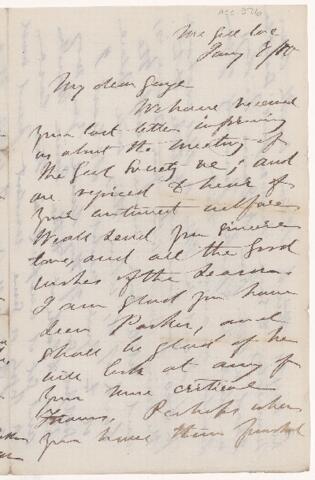 Acc 376
McGill Col
Jany 8/80
My dear George
We have received
your last letter informing
us about the meeting of
the Geol Society &c; and
are rejoiced to hear of
your continued welfare
We all send you sincere
love, and all the good
wishes of the season.
I am glad you have
seen Parker, and
shall be glad if he
will look at any of
your more critical
Forams. Perhaps when
you have them finished